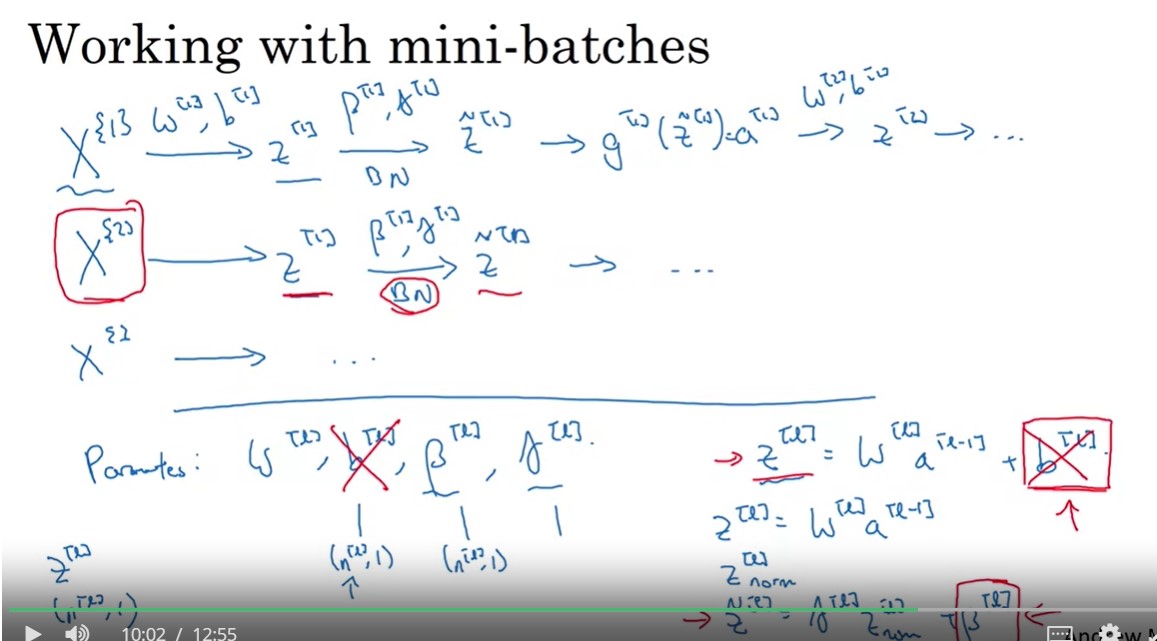 Working with mini-batches
X^{1} W^[1], b^[1] → z^[1] β^[1], γ^[1] → BN z̃^[1] → g^[1](z̃^[1]) = a^[1] W^[2], b^[2] → z^[2] → ...
X^{2} → z^[1] β^[1], γ^[1] → BN z̃^[1] → ...
X^{ } → ...
Parameters: W^[l], b^[l], β^[l], γ^[l].
z^[l] = W^[l] a^[l-1] + b^[l].
z^[l] = W^[l] a^[l-1]
(n^[l], 1) (n^[l], 1)
z^[l]
(n^[l], 1)
z^[l] norm
→ z̃^[l] = γ^[l] z^[l] norm + β^[l]
10:02 / 12:55